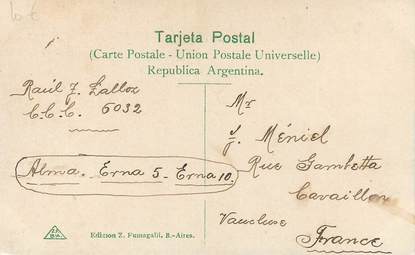 10 €
Tarjeta Postal
(Carte Postale - Union Postale Universelle)
Republica Argentina.
Raúl J.
C.C.C. 6032
Alma. Erna 5 - Erna 10.
Mr
J. Méniel
Rue Gambetta
Cavaillon
Vaucluse
France
Edicion Z. Fumagalli. B.-Aires.